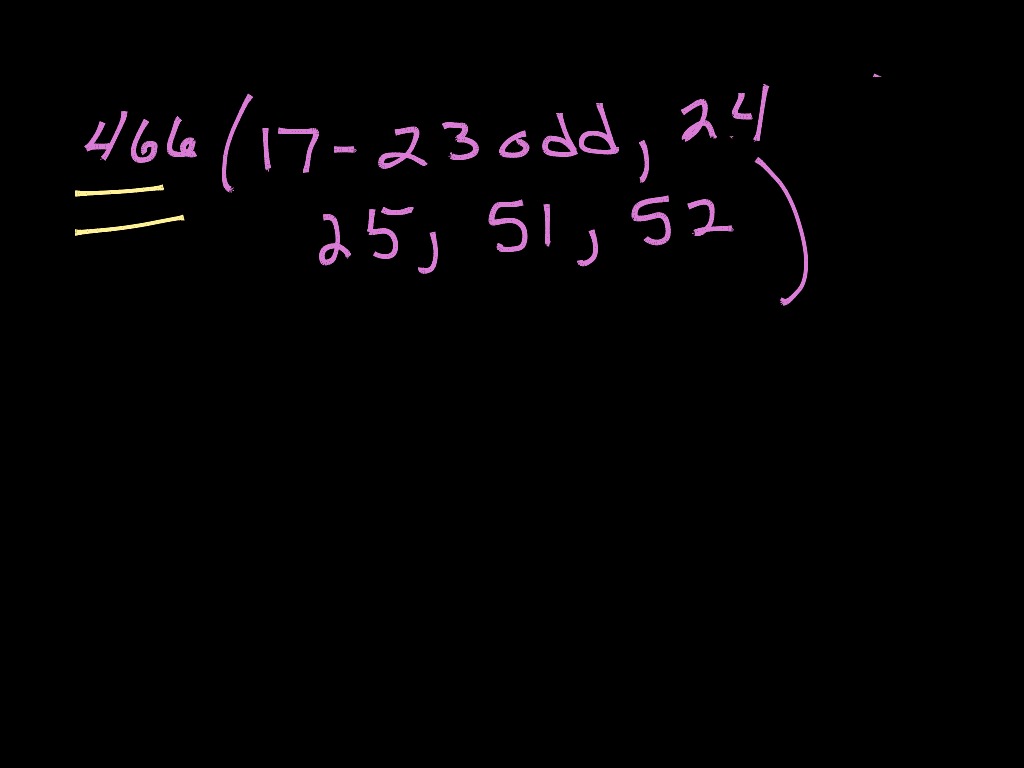 466 (17-23 odd, 24
25, 51, 52)